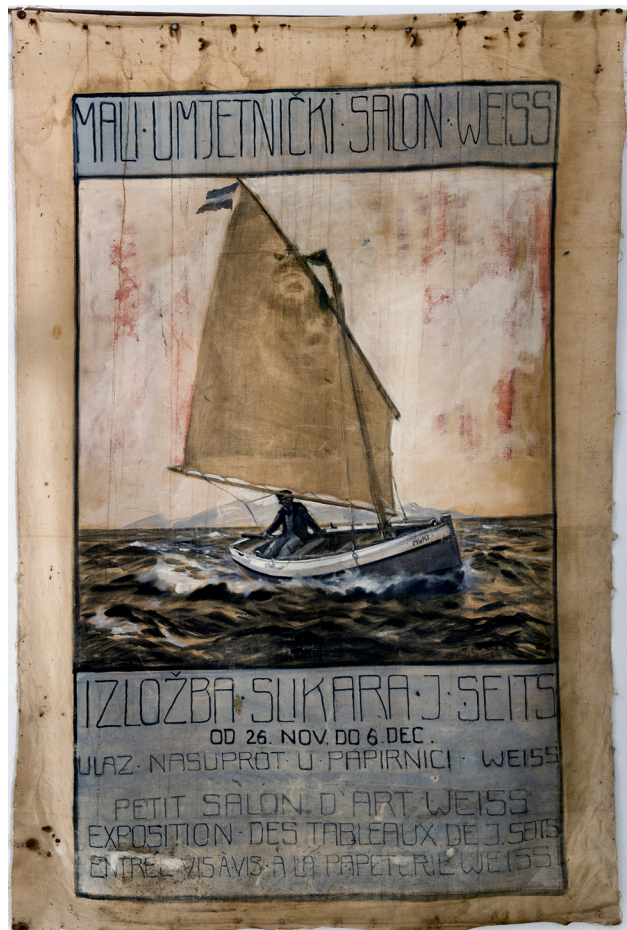 MALI·UMJETNIČKI·SALON·WEISS
MUKI
IZLOŽBA·SLIKARA·J·SEITS
OD 26. NOV. DO 6 DEC.
ULAZ·NASUPROT·U·PAPIRNICI·WEISS
PETIT SALON D'ART WEISS
EXPOSITION·DES TABLEAUX DE J. SEITS
ENTREE VIS A VIS À LA PAPETERIE WEISS